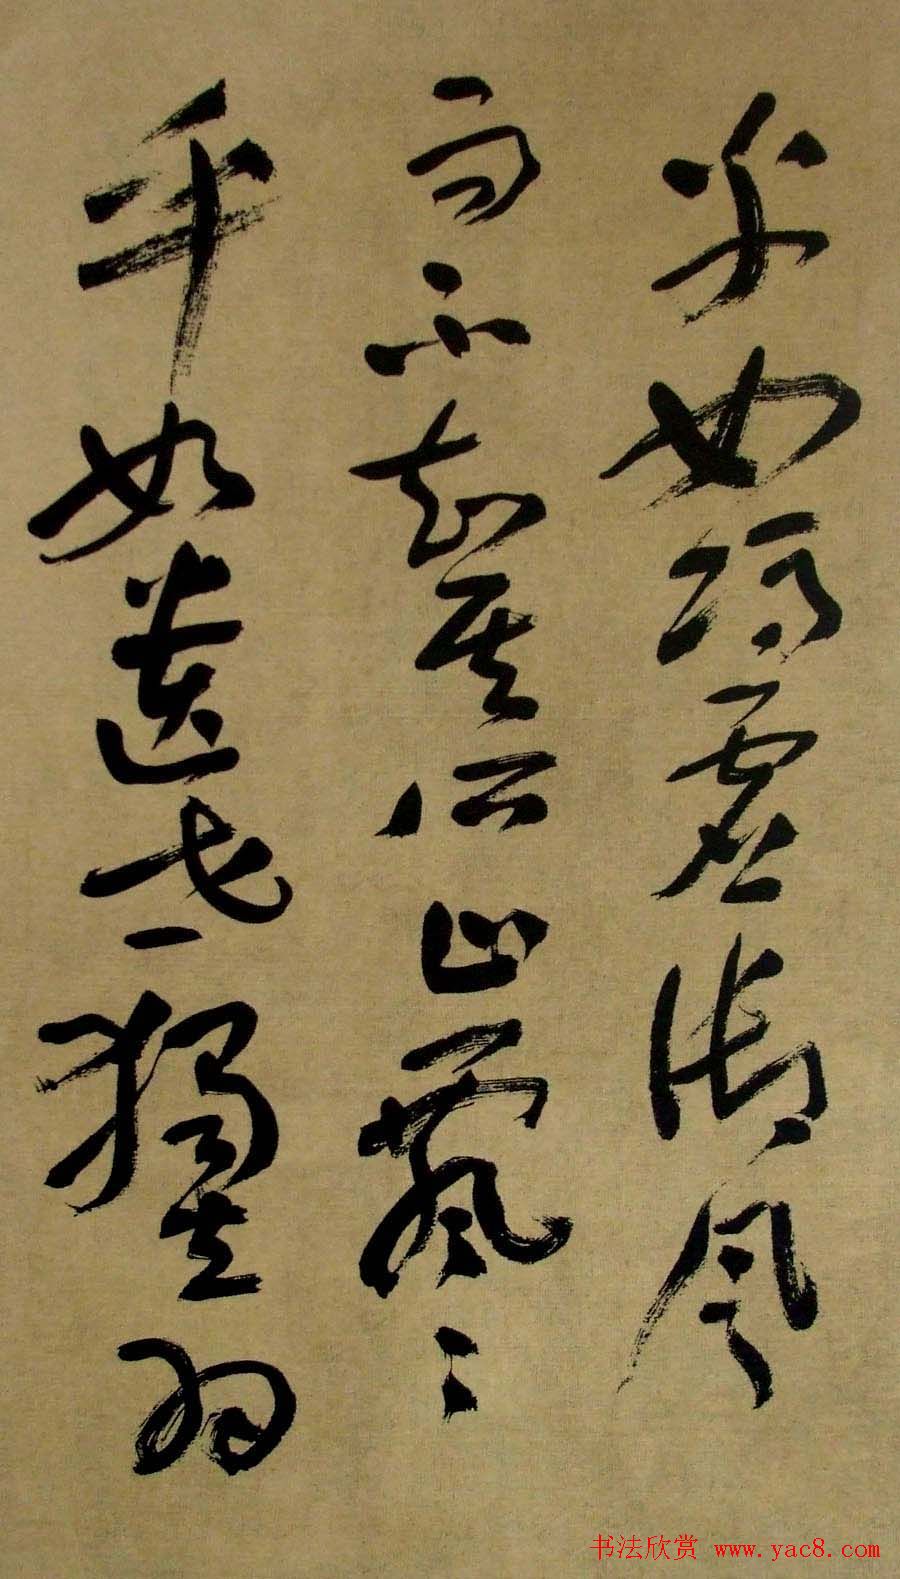 乎如馮虛御風
而不知其所止飄〻
乎如遺世獨立羽
书法欣赏 www.yac8.com